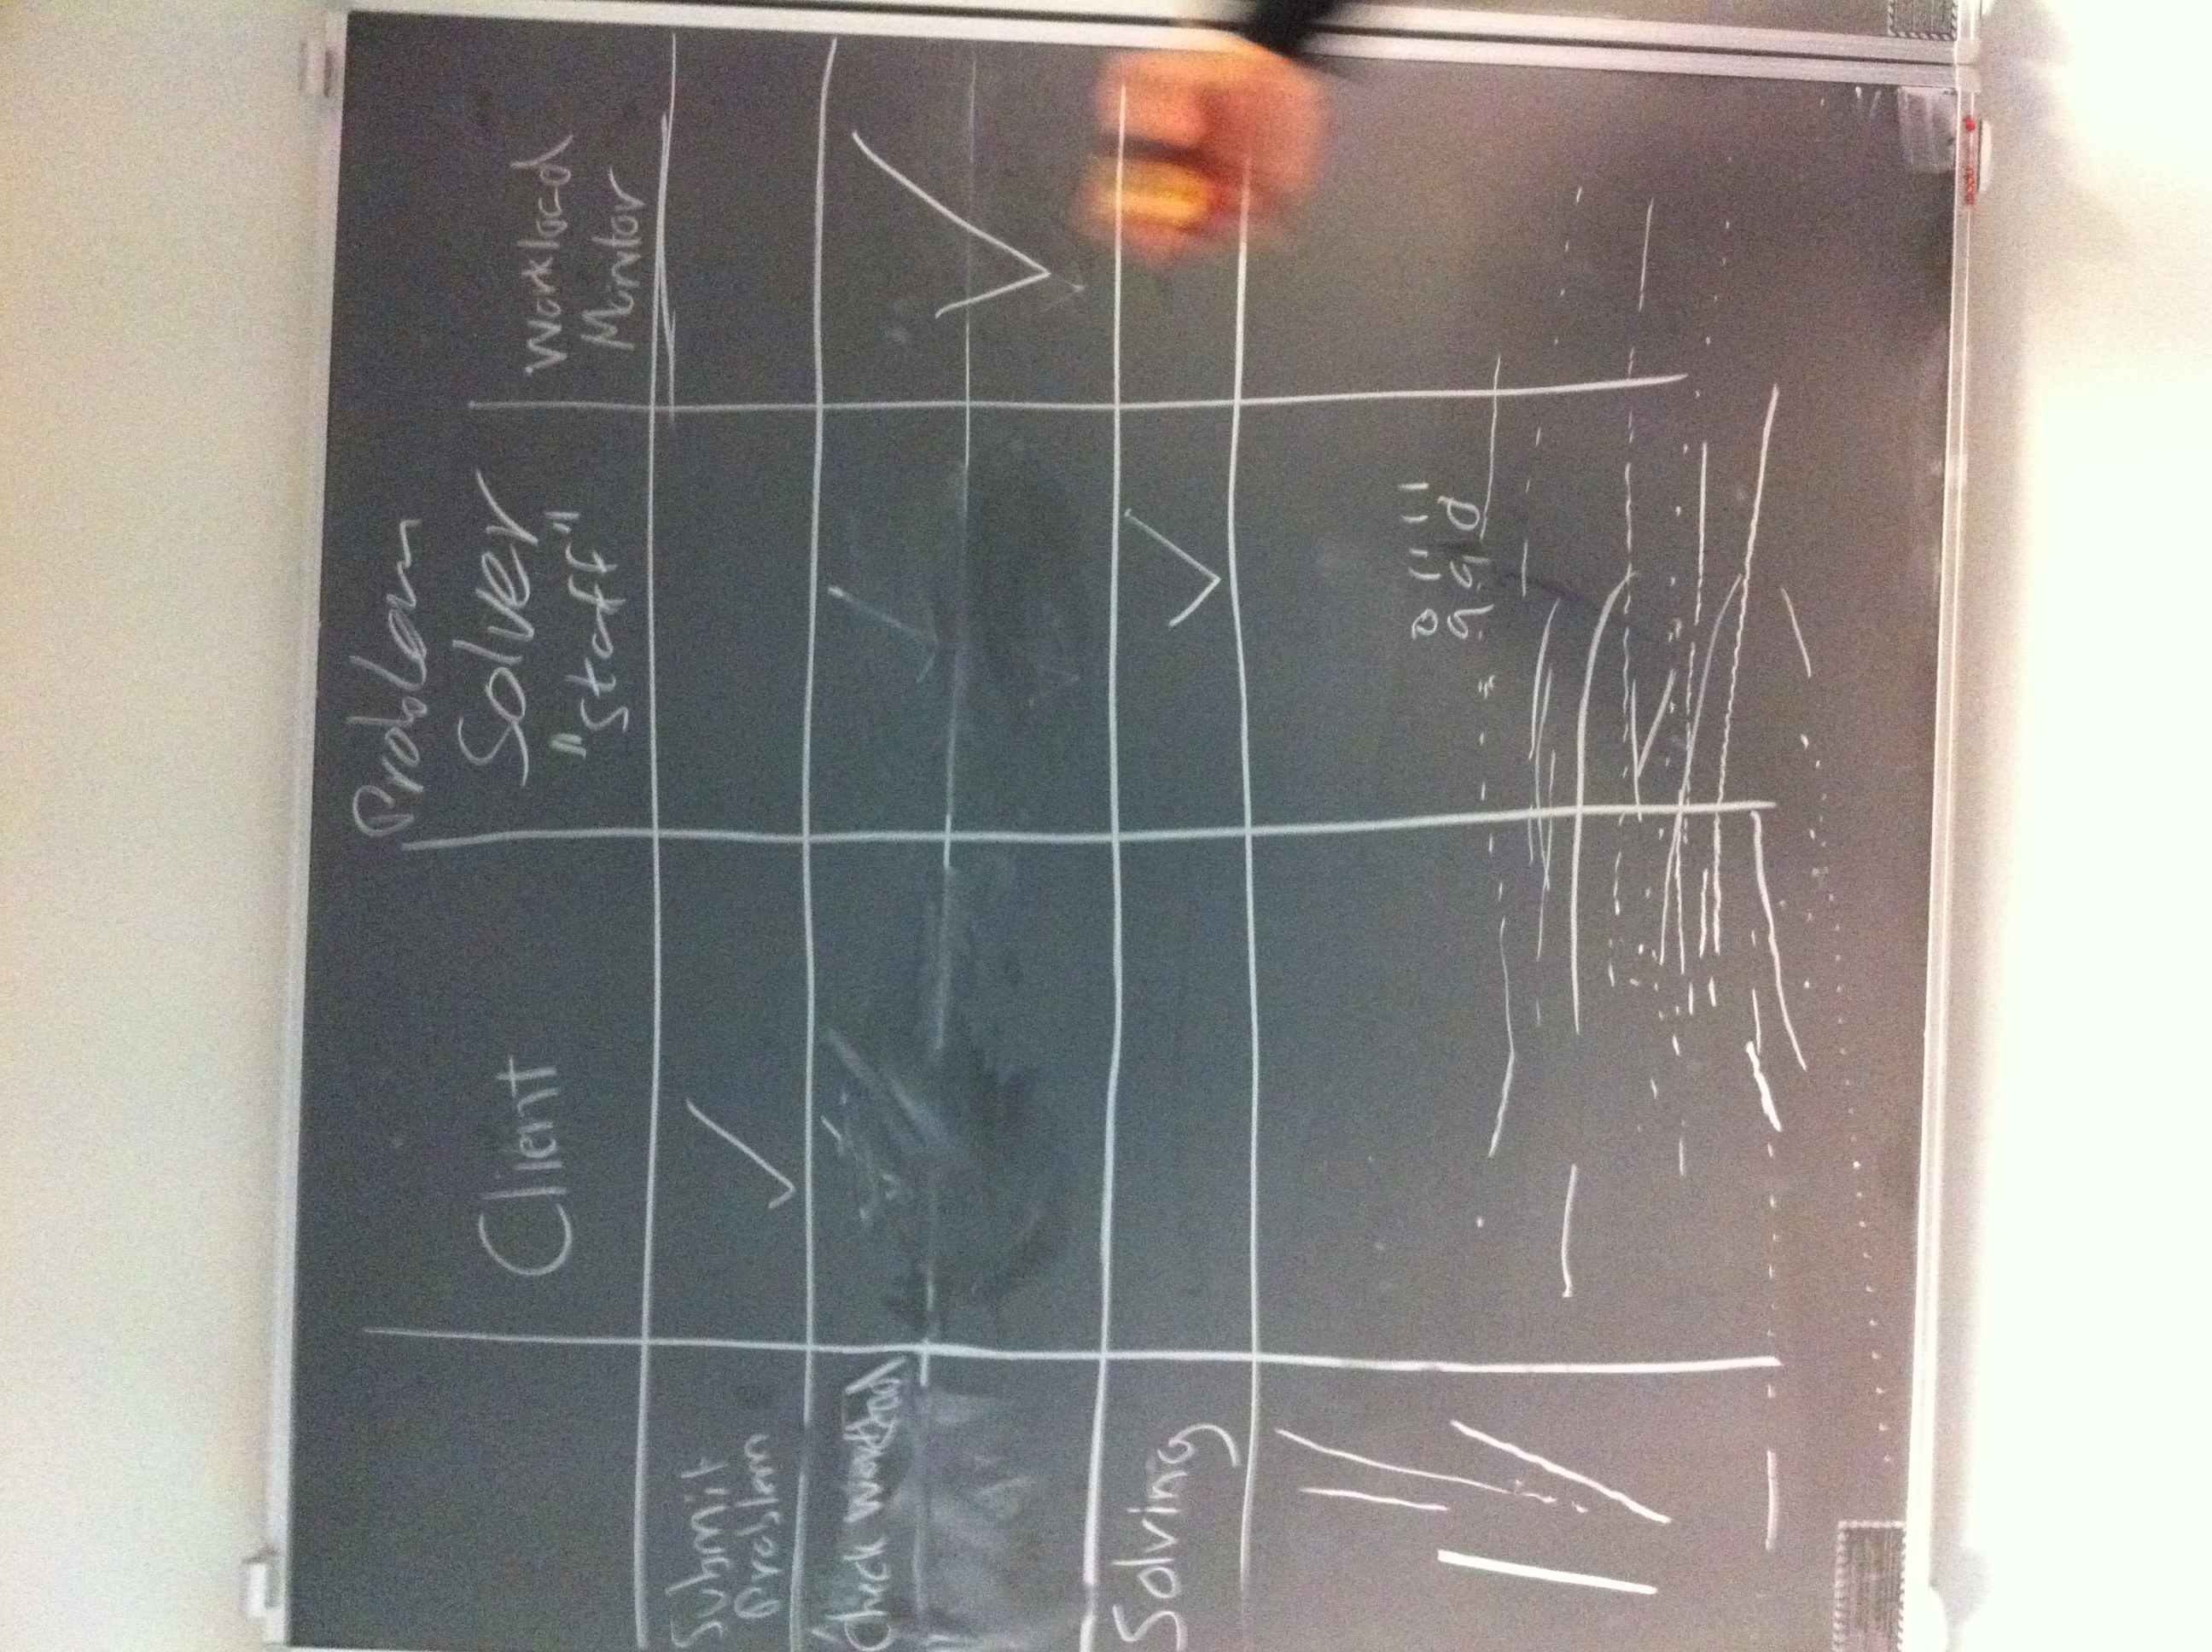 Problem
Client
Solver
"staff"
Workload
Monitor
Submit
Problem
✓
Check Workload
✓
Solving
✓